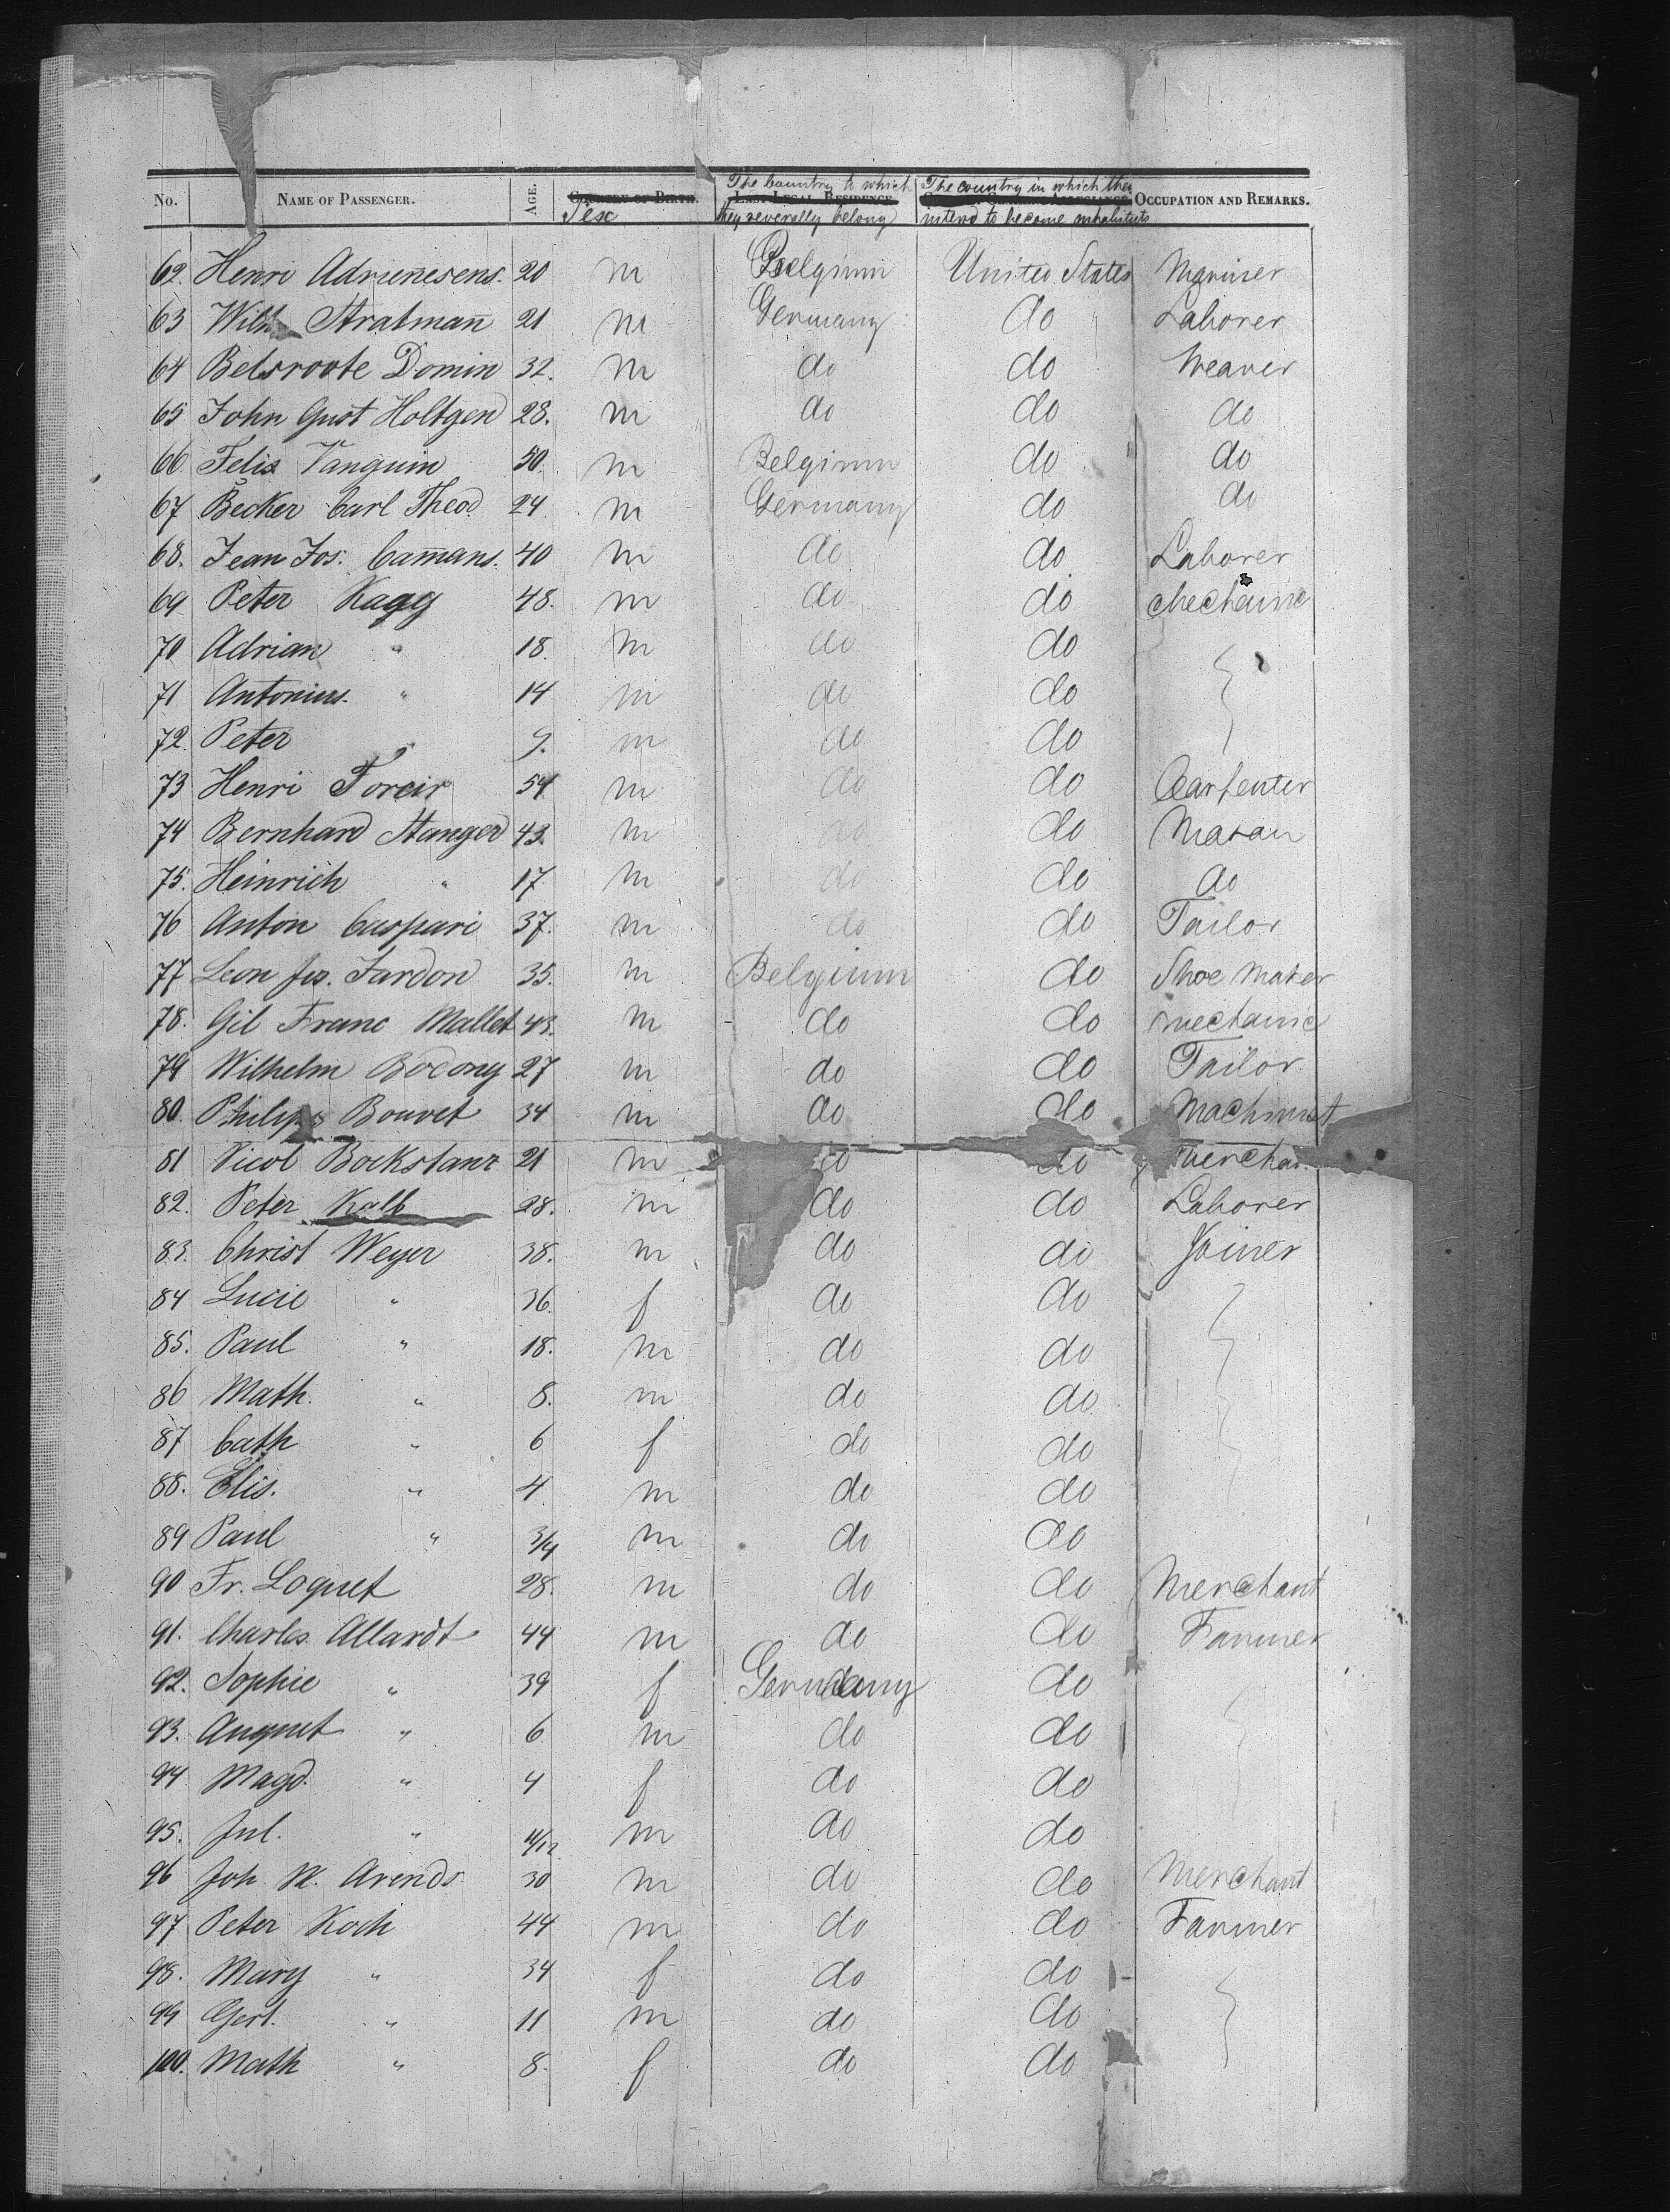 No. NAME OF PASSENGER. AGE. Sex The Country to which they severally belong The country in which they intend to become inhabitants OCCUPATION AND REMARKS.
62. Henri Adrienesens. 20 m Belgium United States Mariner
63 Wilh Stratmañ 21 m Germany do Laborer
64 Betsroote Domin 32. m do do Weaver
65 John Gust Holtgen 28. m do do do
66 Felix Vanguin 50. m Belgium do do
67 Becker Carl Theod. 24 m Germany do do
68. Jean Jos. Cam̄ans. 40 m do do Laborer
69 Peter Kagg 48. m do do Mechanic
70 Adrian " 18. m do do
71 Antonius. " 14 m do do
72. Peter 9. m do do
73 Henri Foreir 54 m do do Carpenter
74 Bernhard Stanger 43. m do do Mason
75. Heinrich " 17 m do do do
76 Anton Caspari 37. m do do Tailor
77 Leon Jos. Jardon 35. m Belgium do Shoe Maker
78. Gil Franc Mallet 43. m do do mechanic
79 Wilhelm Bodony 27 m do do Tailor
80. Philipp Bouvet 34 m do do Machinist
81 Nicol Bockstanz 21 m do do Merchan
82. Peter Kalb 28. m do do Laborer
83. Christ Weyer 38. m do do Joiner
84 Lucie " 36. f do do
85. Paul " 18. m do do
86 Math. " 8. m do do
87 Cath " 6 f do do
88. Elis. " 4 m do do
89 Paul " 3/4 m do do
90 Fr. Loquet 28. m do do Merchant
91. Charles Allardt 44 m do do Farmer
92. Sophie " 39 f Germany do
93. August " 6 m do do
94 Magd. " 4 f do do
95. Jul. " 4/12 m do do
96 Joh M. Arends 30 m do do Merchant
97 Peter Koch 44 m do do Farmer
98. Mary " 34 f do do
99 Gert. " 11 m do do
100. Math " 8. f do do